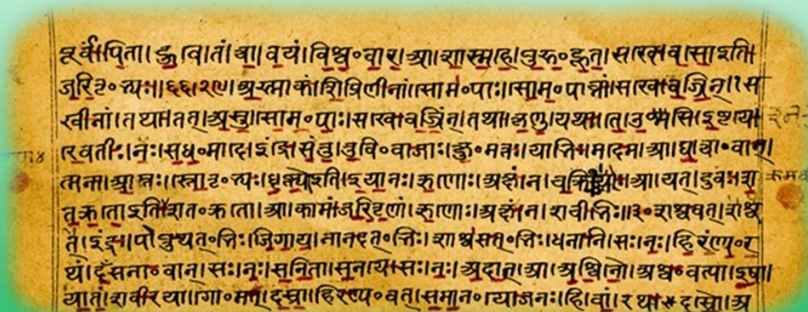 पूर्वं।पिता।हुवे।तं।त्वा।वयं।विश्व॰वार।आ।शास्महे।पुरु॰हूत।सखे।वसो॒इति
जरितृ॰भ्यः॥अस्माकं।शिप्रिणीनां।सोम॰पाः।सोम॰पाव्नां।सखे।वज्रिन्।स
खीनां।तथा।तत्।अस्तु।सोम॰पाः।सखे।वज्रिन्।तथा।कृणु।यथा।ते।उश्मसि।इष्टये
रेवतीः।नः।सध॰मादे।इंद्रे।संतु।तुवि॰वाजाः।क्षु॰मंतः।याभिः।मदेम।आ।घ।त्वा॰वान्।
त्मना।आप्तः।स्तोतृ॰भ्यः।धृष्णोइति।इयानः।ऋणोः।अक्षं।न।आ।यत्।दुवः।श
तक्रतोइतिशत॰क्रतो।आ।कामं।जरितॄणां।ऋणोः।अक्षं।न।शचीभिः॥
इंद्रः।पोप्रुथत्॰भिः।जिगाय।नानदत्॰भिः।शाश्वसत्॰भिः।धनानि।सः।नः।हिरण्य॰र
थं।दंसना॰वान्।सः।नः।सनिता।सनये।सः।नः।अदात्।आ।अश्विनौ।अश्व॰वत्या।इषा।
यातं।शवीरया।गो॰मत्।दस्रा।हिरण्य॰वत्।समान॰योजनः।हि।वां।रथः।दस्रौ।अ